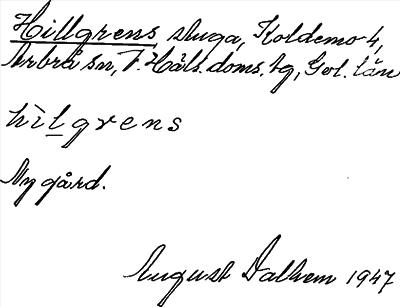 Hillgrens stuga, Koldemo 4,
Arbrå sn, V. Häls. doms. tg, Gvl. län
hìlgrens
Ny gård.
August Dalhem 1947